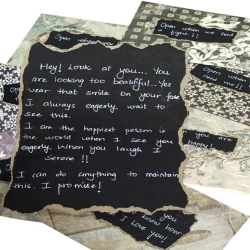 Open when you
Open when we had
a fight !!
Open when you
need me !!
Hey! Look at you... You
are looking too beautiful.. Yes
wear that smile on your face
I always eagerly wait to
see this.
I am the happiest person in
the world when I see you
eagerly. When you laugh I
Serene !!
I can do anything to maintain
this. I promise!
you are
happy!
you
know how
I love you!